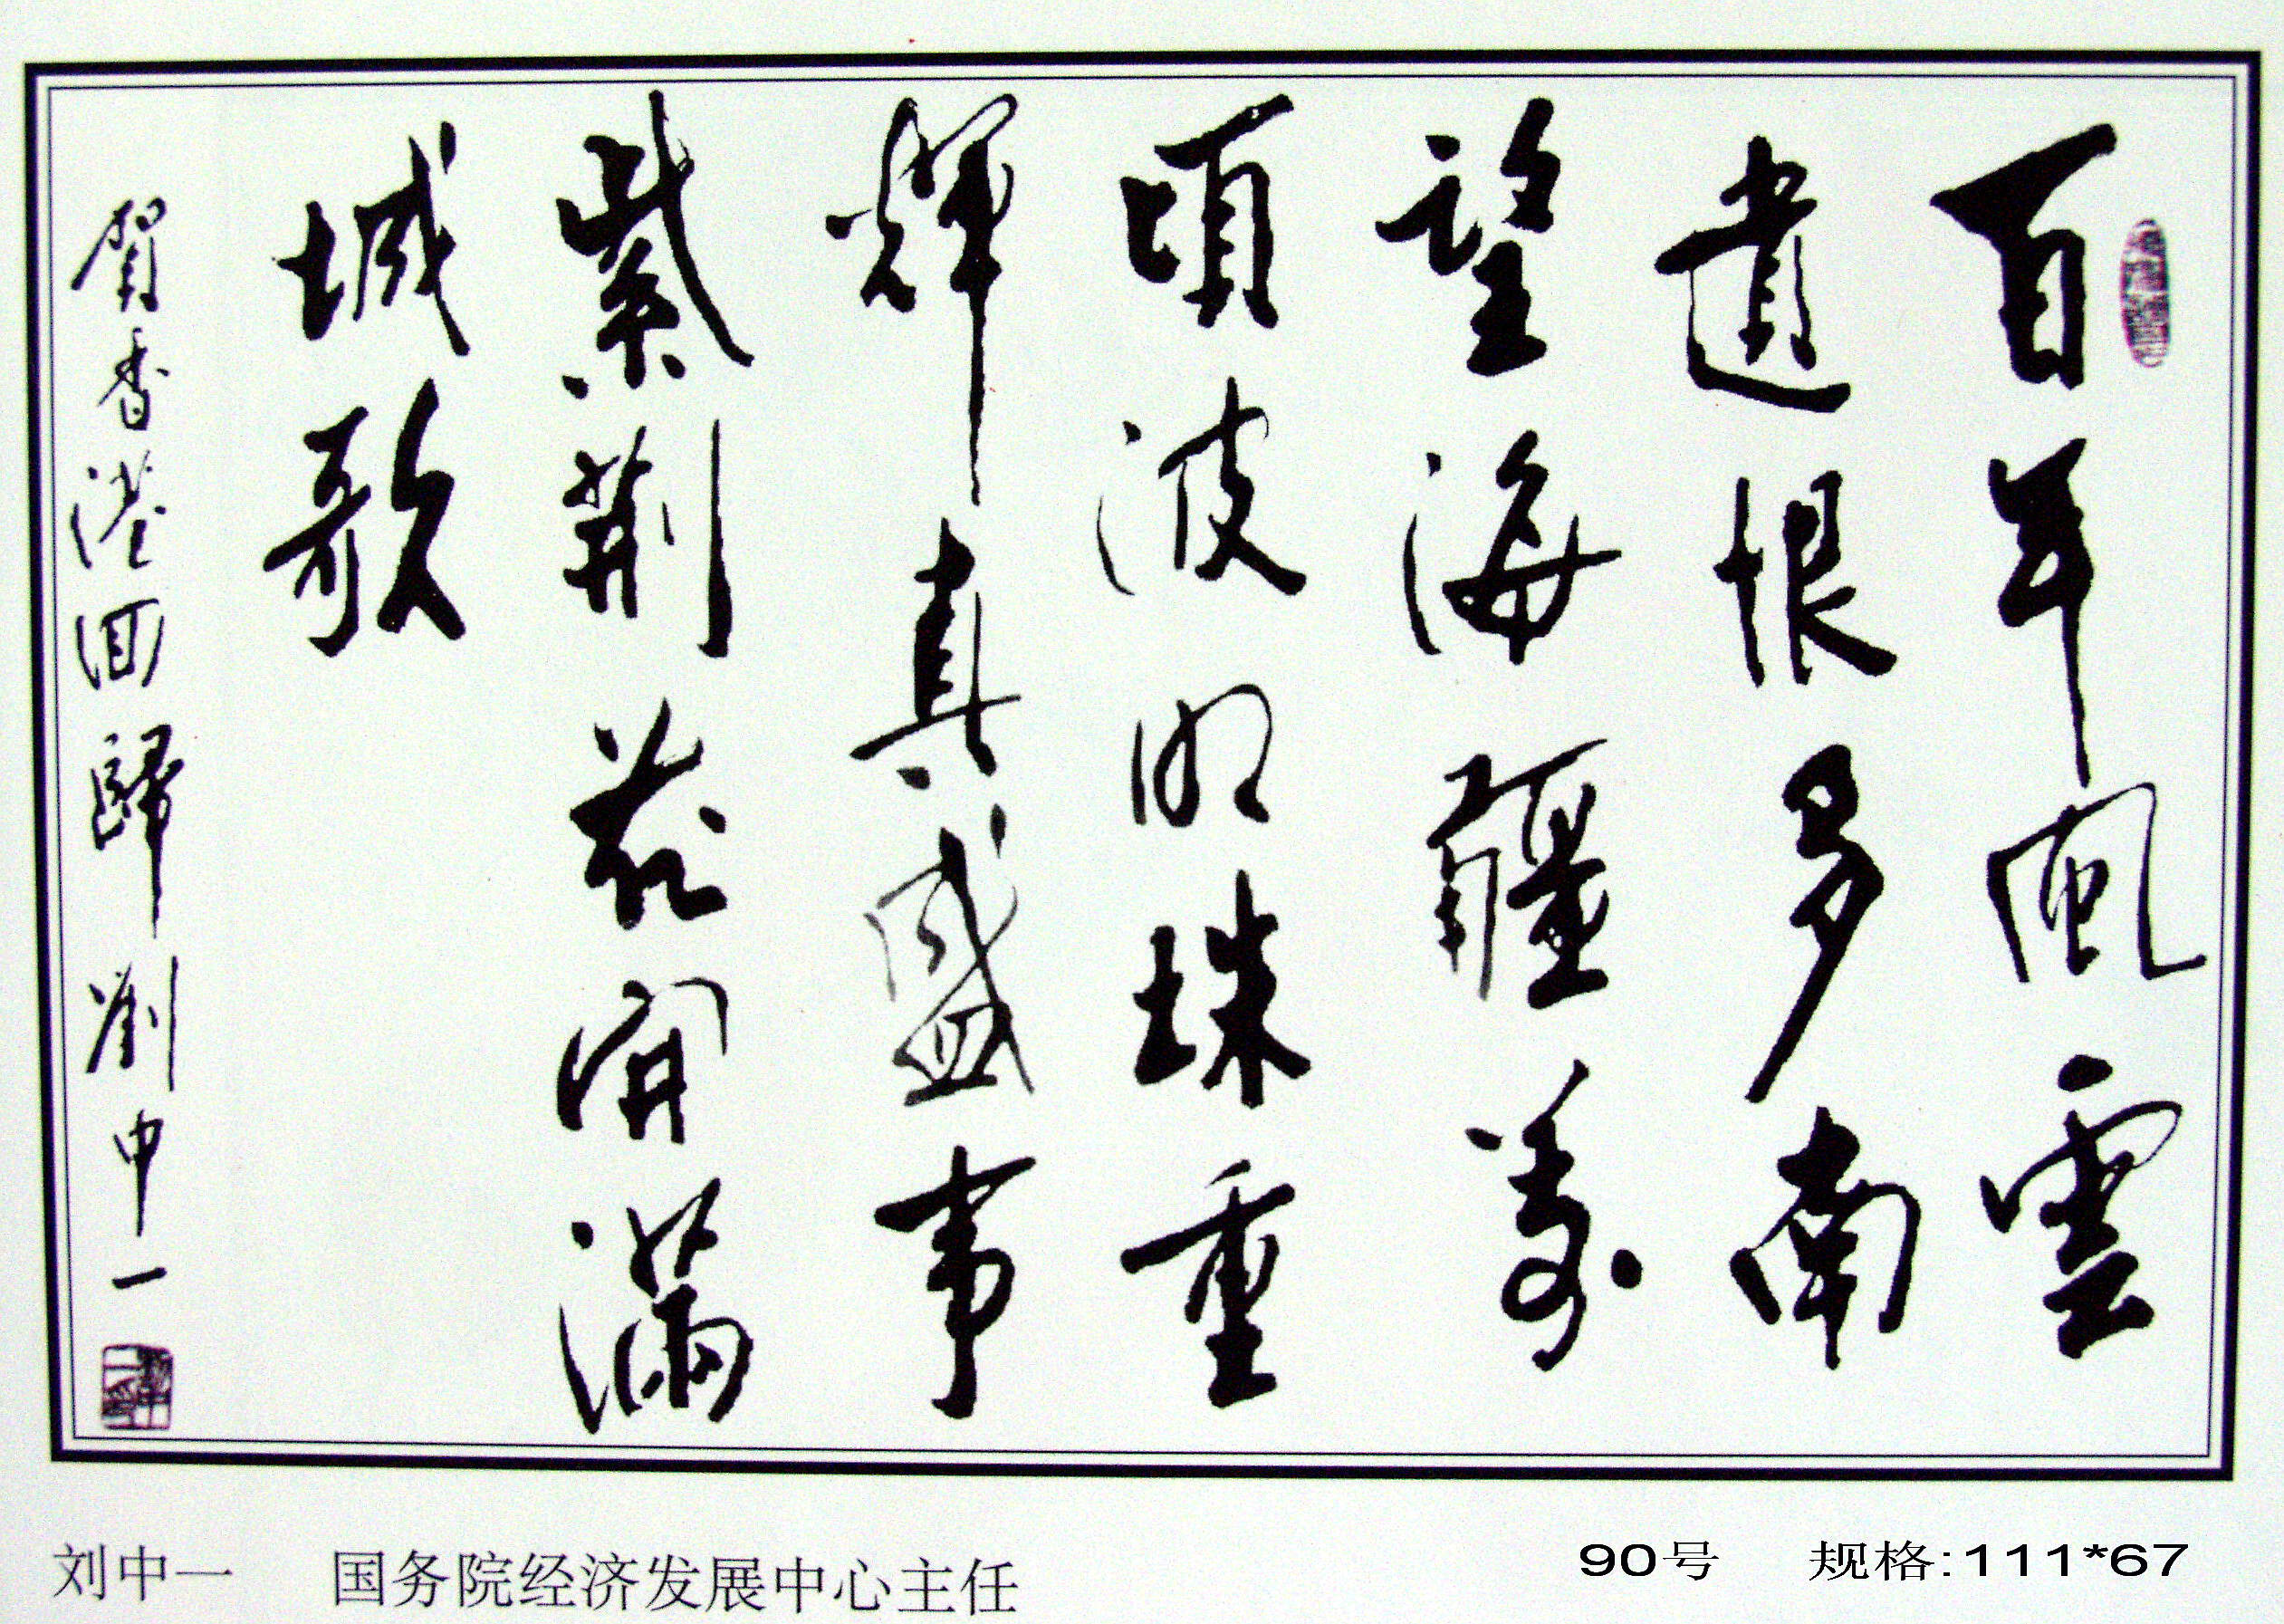 百年風雲
遺恨多南
望海疆萬
頃波明珠重
輝真盛事
紫荆花開滿
城歌
賀香港回歸 劉中一
刘中一 国务院经济发展中心主任
90号 规格:111*67